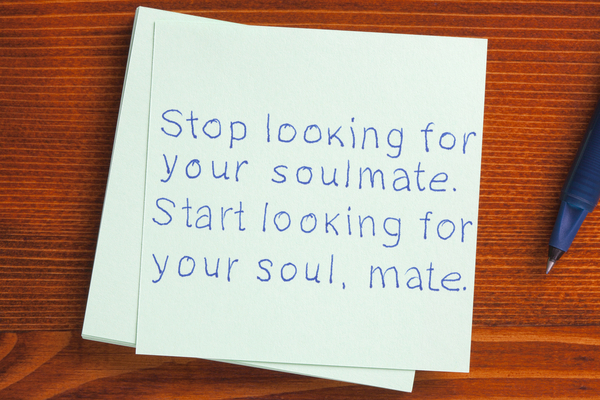 Stop looking for
your soulmate.
Start looking for
your soul, mate.